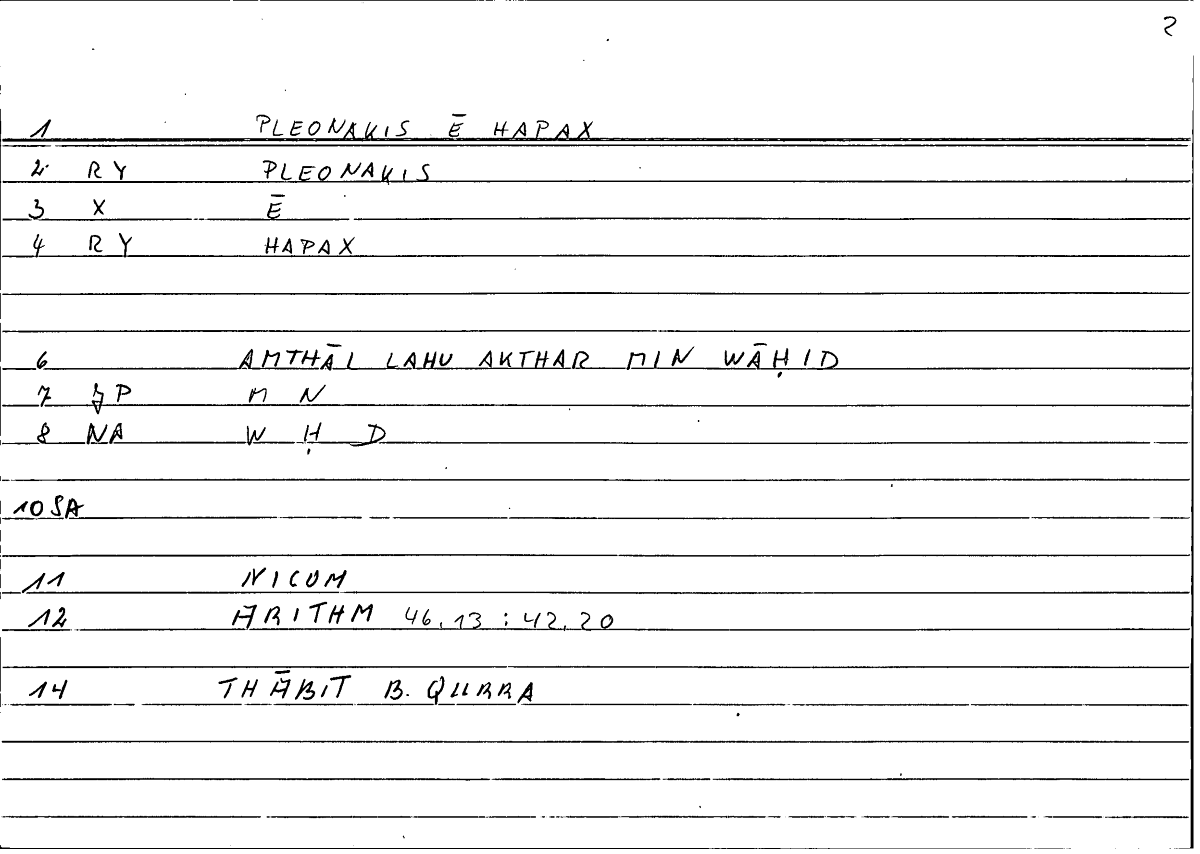 2
1 PLEONAKIS Ē HAPAX
2 RY PLEONAKIS
3 X Ē
4 RY HAPAX
6 AMTHĀL LAHU AKTHAR MIN WĀḤID
7 P M N
8 NA W Ḥ D
10 SA
11 NICOM
12 ARITHM 46.13 : 42.20
14 THĀBIT B. QURRA